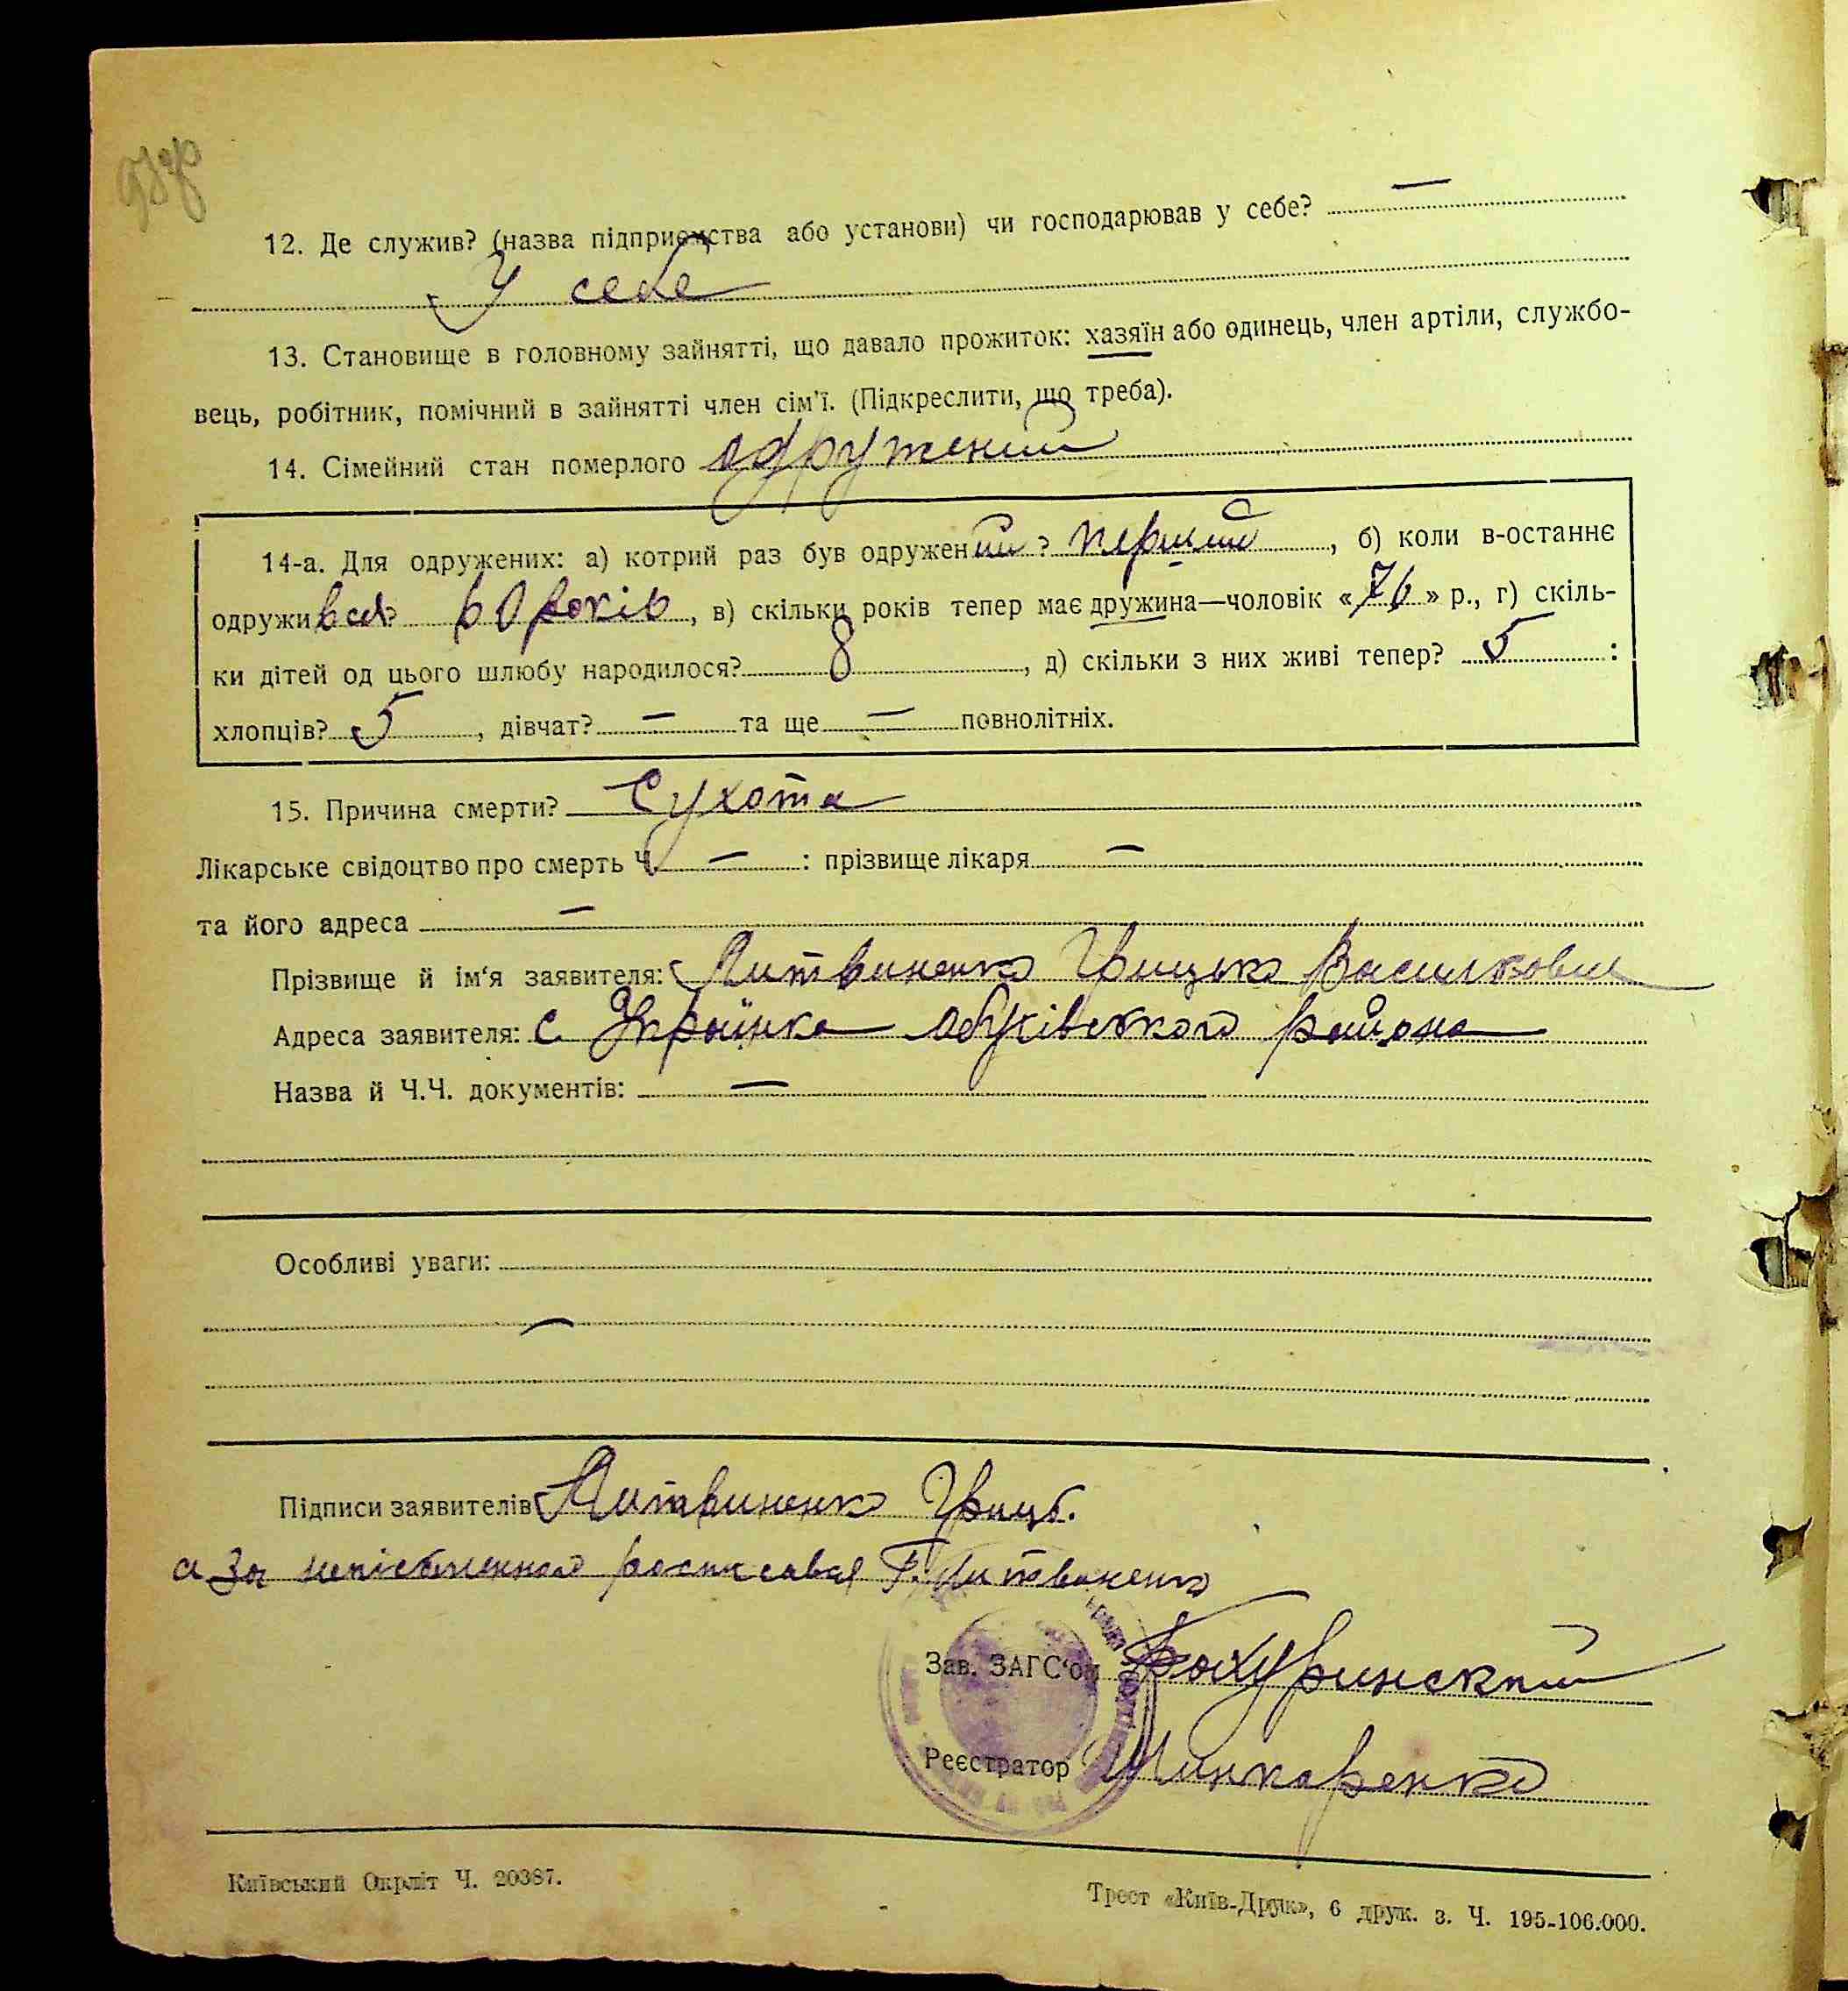 12. Де служив? (назва підприємства або установи) чи господарював у себе? —
У себе
13. Становище в головному зайнятті, що давало прожиток: хазяїн або одинець, член артіли, службо-
вець, робітник, помічний в зайнятті член сім'ї. (Підкреслити, що треба).
14. Сімейний стан померлого одружений
14-а. Для одружених: а) котрий раз був одружений? перший, б) коли в-останнє
одружився? 60 років, в) скільки років тепер має дружина—чоловік «76» р., г) скіль-
ки дітей од цього шлюбу народилося? 8, д) скільки з них живі тепер? 5:
хлопців? 5, дівчат? — та ще — повнолітніх.
15. Причина смерти? Сухота
Лікарське свідоцтво про смерть Ч. — : прізвище лікаря —
та його адреса —
Прізвище й ім'я заявителя: Литвиненко Грицько Васильович
Адреса заявителя: с. Українка Обухівського району
Назва й Ч.Ч. документів: —
Особливі уваги:
—
Підписи заявителів Литвиненко Грицк.
а за неписьменного росписався Г. Литвиненко
Зав. ЗАГС'ом
Реєстратор Шинкаренко
Київський Окрліт Ч. 20387.
Трест «Київ-Друк», 6 друк. з. Ч. 195-106.000.